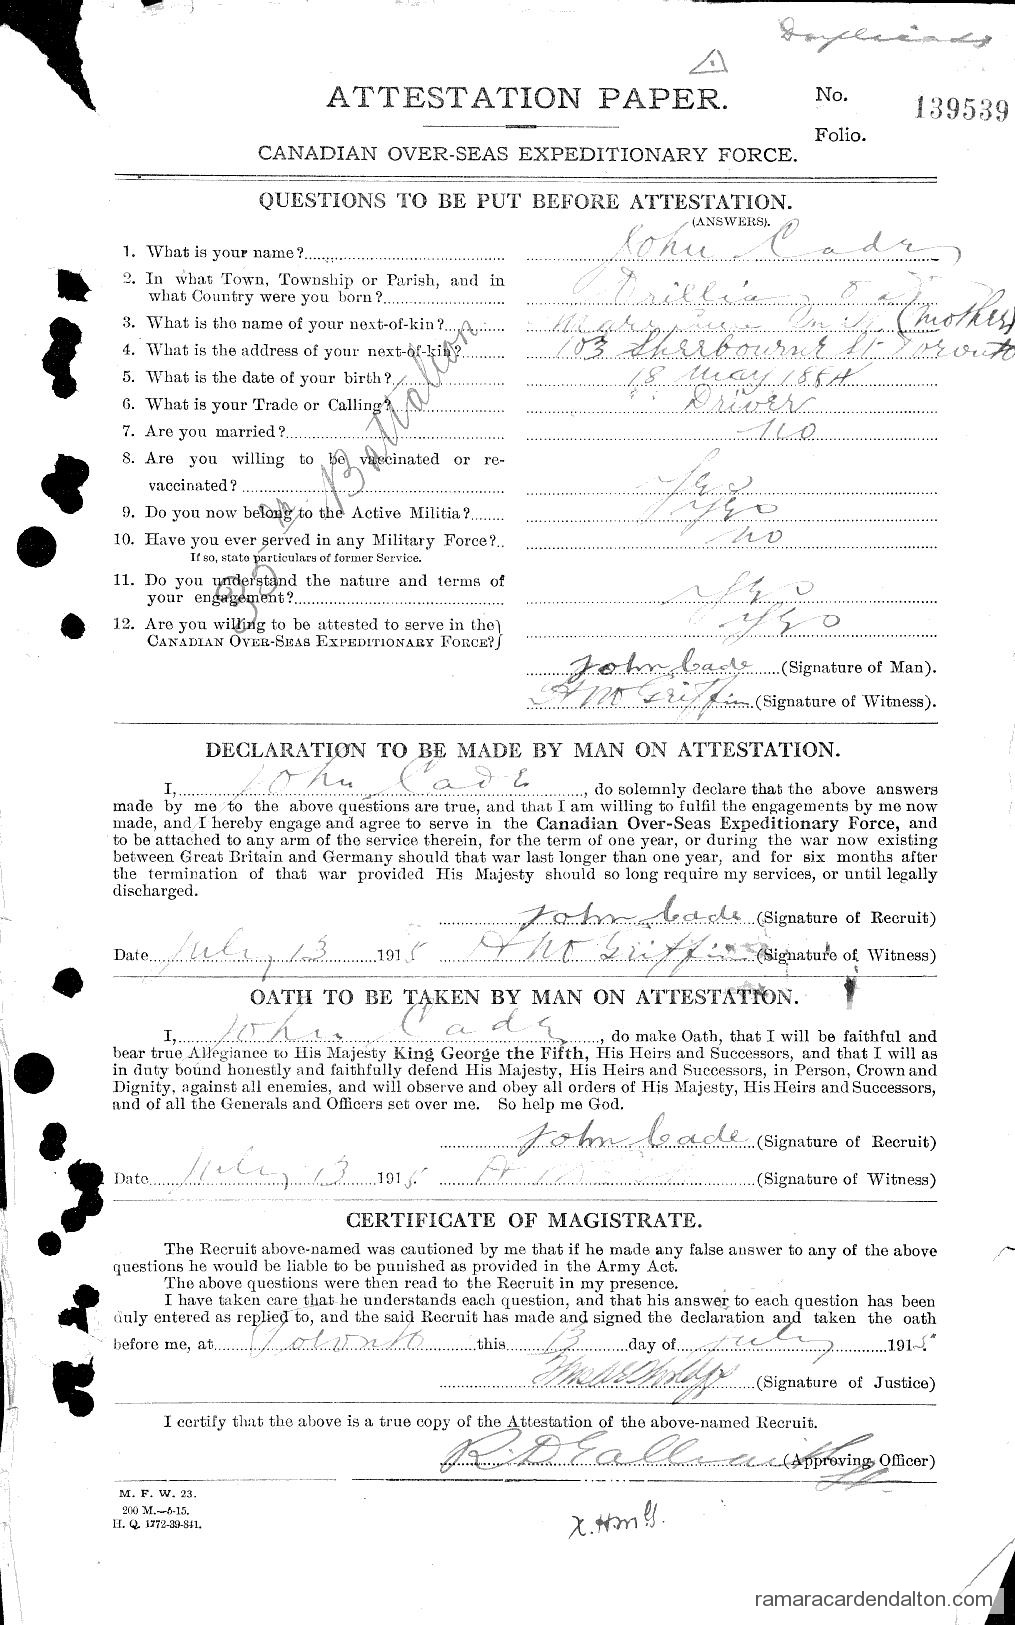 Duplicate
ATTESTATION PAPER.
No. 139539
Folio.
CANADIAN OVER-SEAS EXPEDITIONARY FORCE.
QUESTIONS TO BE PUT BEFORE ATTESTATION.
(ANSWERS).
1. What is your name? John Cade
2. In what Town, Township or Parish, and in
what Country were you born? Orillia, Ont
3. What is the name of your next-of-kin? (Mother)
4. What is the address of your next-of-kin? 103 Sherbourne St Toronto
5. What is the date of your birth? 18 May 1884
6. What is your Trade or Calling? Driver
7. Are you married? No
8. Are you willing to be vaccinated or re-
vaccinated? Yes
9. Do you now belong to the Active Militia? Yes
10. Have you ever served in any Military Force? No
If so, state particulars of former Service.
11. Do you understand the nature and terms of
your engagement? Yes
12. Are you willing to be attested to serve in the
CANADIAN OVER-SEAS EXPEDITIONARY FORCE? Yes
Battalion
John Cade (Signature of Man).
H M Griffin (Signature of Witness).
DECLARATION TO BE MADE BY MAN ON ATTESTATION.
I, John Cade, do solemnly declare that the above answers
made by me to the above questions are true, and that I am willing to fulfil the engagements by me now
made, and I hereby engage and agree to serve in the Canadian Over-Seas Expeditionary Force, and
to be attached to any arm of the service therein, for the term of one year, or during the war now existing
between Great Britain and Germany should that war last longer than one year, and for six months after
the termination of that war provided His Majesty should so long require my services, or until legally
discharged.
John Cade (Signature of Recruit)
Date July 13 1915 H M Griffin (Signature of Witness)
OATH TO BE TAKEN BY MAN ON ATTESTATION.
I, John Cade, do make Oath, that I will be faithful and
bear true Allegiance to His Majesty King George the Fifth, His Heirs and Successors, and that I will as
in duty bound honestly and faithfully defend His Majesty, His Heirs and Successors, in Person, Crown and
Dignity, against all enemies, and will observe and obey all orders of His Majesty, His Heirs and Successors,
and of all the Generals and Officers set over me. So help me God.
John Cade (Signature of Recruit)
Date July 13 1915 (Signature of Witness)
CERTIFICATE OF MAGISTRATE.
The Recruit above-named was cautioned by me that if he made any false answer to any of the above
questions he would be liable to be punished as provided in the Army Act.
The above questions were then read to the Recruit in my presence.
I have taken care that he understands each question, and that his answer to each question has been
duly entered as replied to, and the said Recruit has made and signed the declaration and taken the oath
before me, at Toronto this 13 day of July 1915
(Signature of Justice)
I certify that the above is a true copy of the Attestation of the above-named Recruit.
(Approving Officer)
M. F. W. 23.
200 M.—5-15.
H. Q. 1772-39-841.
ramaracardendalton.com